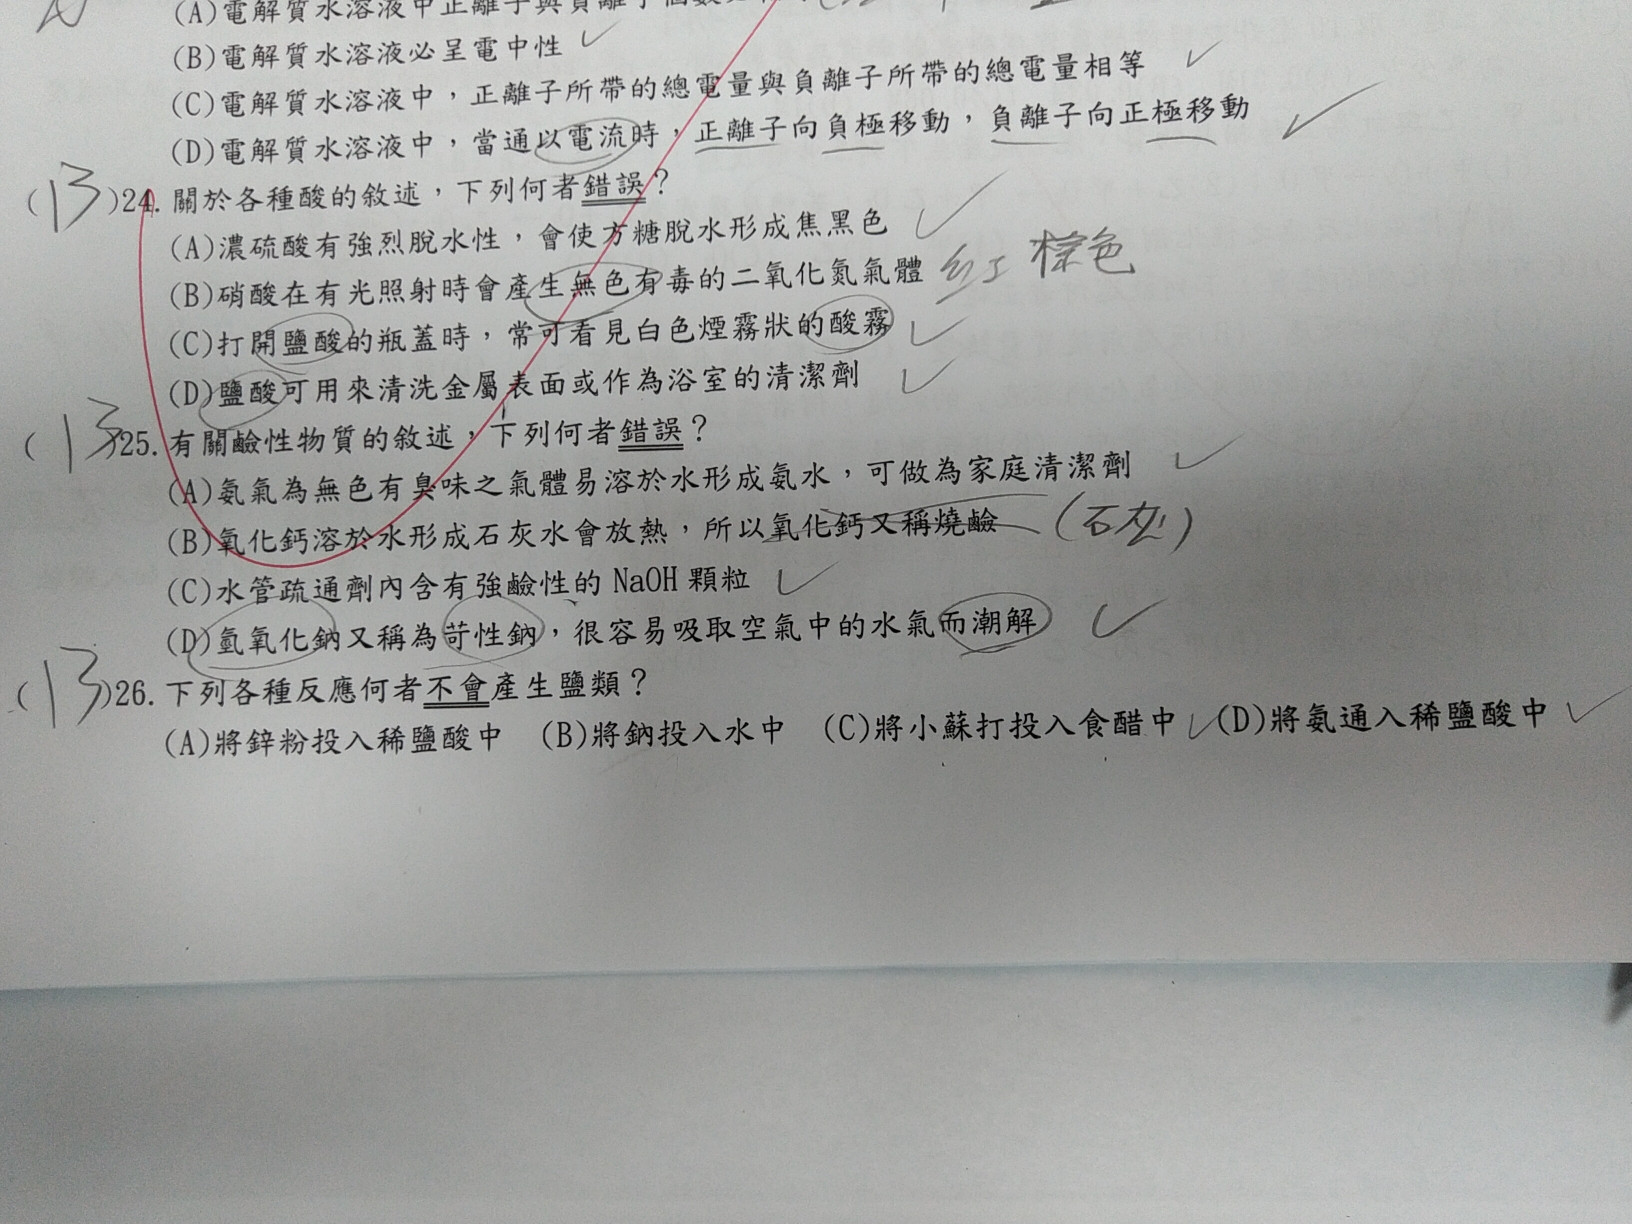 (A)電解質水溶液中正離子與負離子個數
(B)電解質水溶液必呈電中性
(C)電解質水溶液中，正離子所帶的總電量與負離子所帶的總電量相等
(D)電解質水溶液中，當通以電流時，正離子向負極移動，負離子向正極移動
(B)24.關於各種酸的敘述，下列何者錯誤？
(A)濃硫酸有強烈脫水性，會使方糖脫水形成焦黑色
(B)硝酸在有光照射時會產生無色有毒的二氧化氮氣體 紅棕色
(C)打開鹽酸的瓶蓋時，常可看見白色煙霧狀的酸霧
(D)鹽酸可用來清洗金屬表面或作為浴室的清潔劑
(B)25.有關鹼性物質的敘述，下列何者錯誤？
(A)氨氣為無色有臭味之氣體易溶於水形成氨水，可做為家庭清潔劑
(B)氧化鈣溶於水形成石灰水會放熱，所以氧化鈣又稱燒鹼 (石灰)
(C)水管疏通劑內含有強鹼性的 NaOH 顆粒
(D)氫氧化鈉又稱為苛性鈉，很容易吸取空氣中的水氣而潮解
(B)26.下列各種反應何者不會產生鹽類？
(A)將鋅粉投入稀鹽酸中 (B)將鈉投入水中 (C)將小蘇打投入食醋中 (D)將氨通入稀鹽酸中